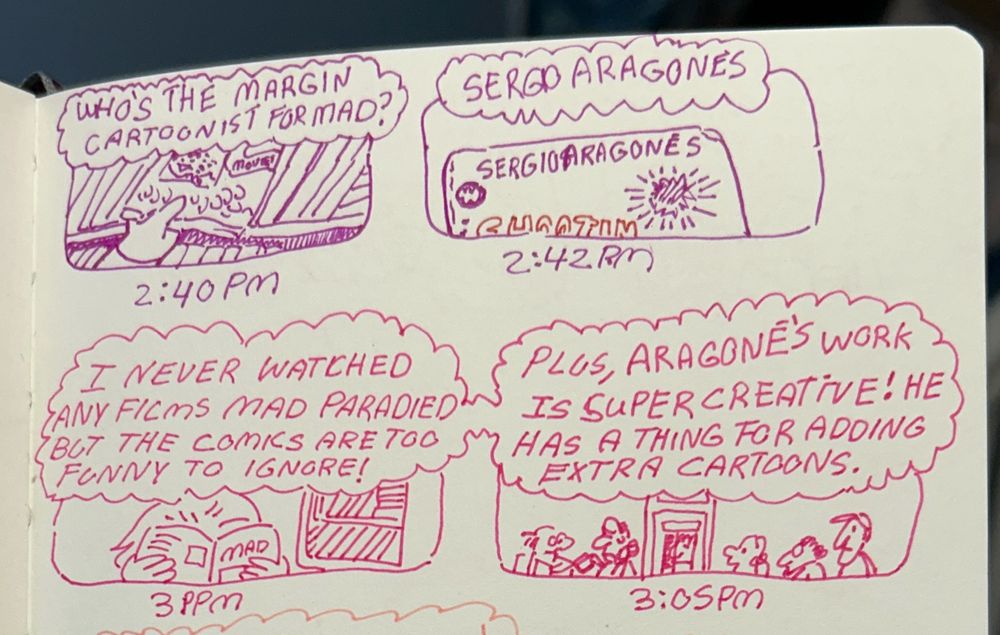 WHO'S THE MARGIN
CARTOONIST FOR MAD?
MOVIE!
2:40 PM
SERGIO ARAGONÉS
SERGIO ARAGONÉS
2:42 PM
I NEVER WATCHED
ANY FILMS MAD PARADIED
BUT THE COMICS ARE TOO
FUNNY TO IGNORE!
MAD
3 PPM
PLUS, ARAGONÉ'S WORK
IS SUPER CREATIVE! HE
HAS A THING FOR ADDING
EXTRA CARTOONS.
3:05 PM